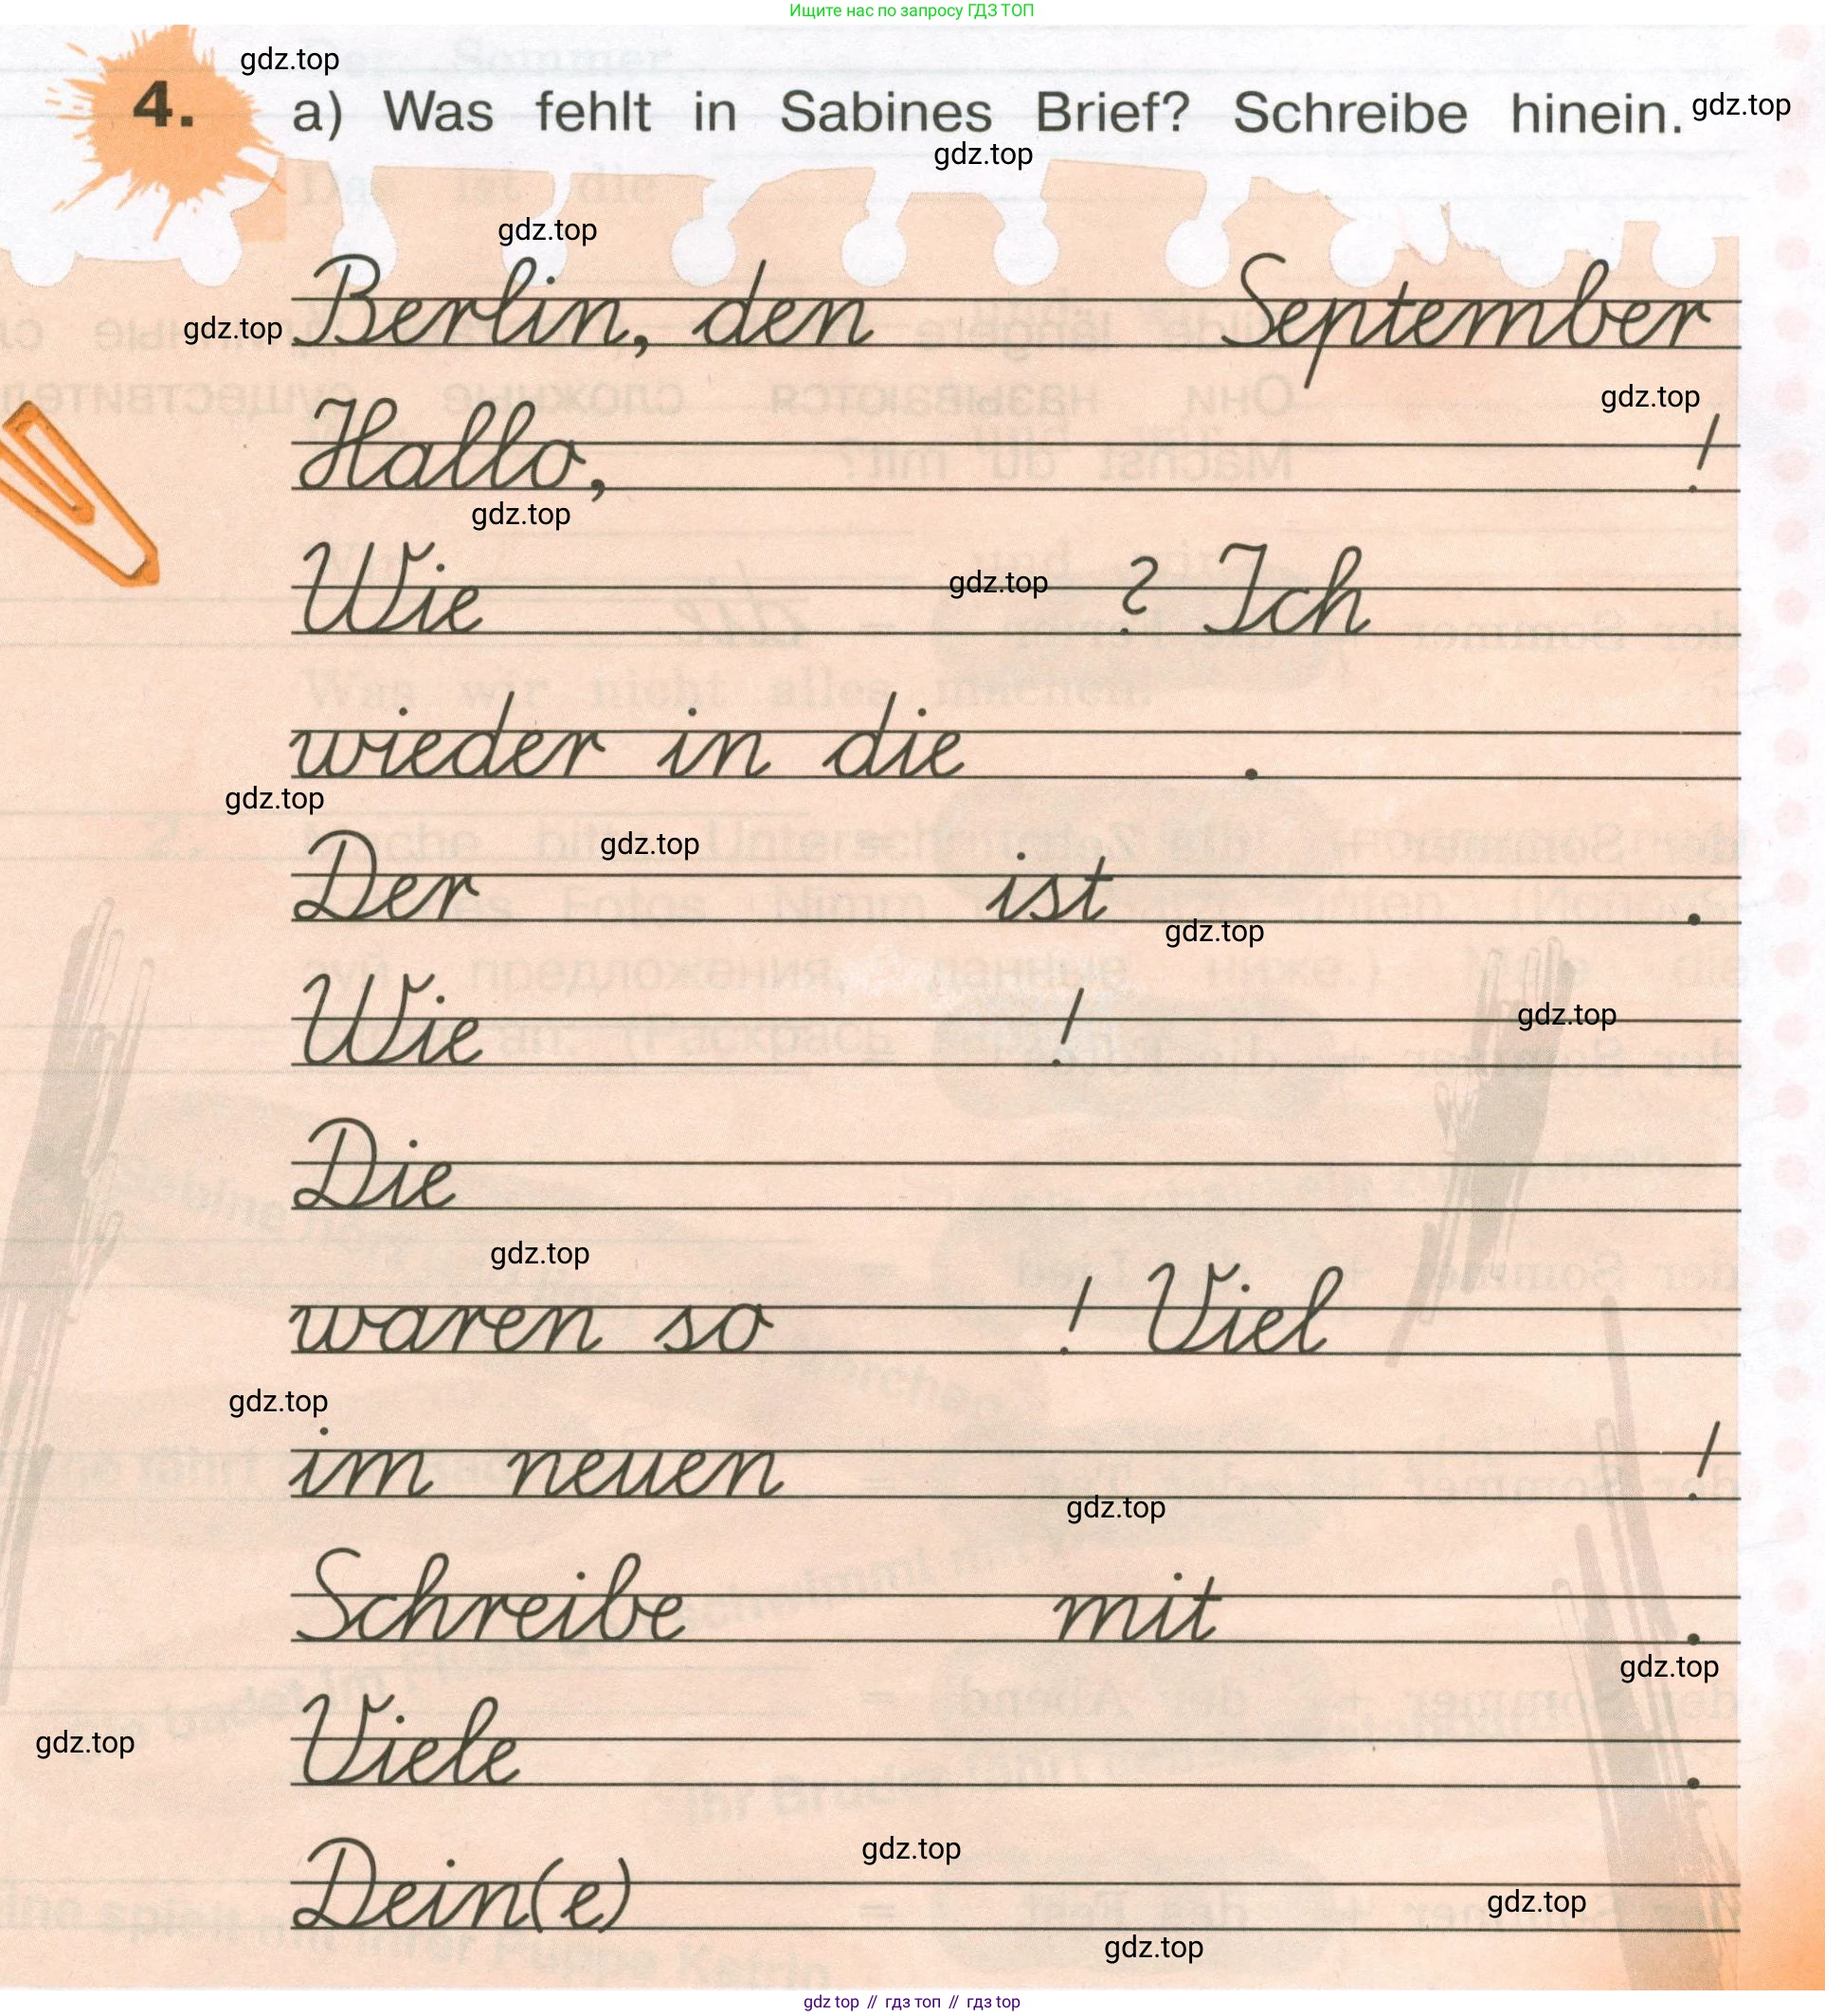 Ищите нас по запросу ГДЗ ТОП
gdz.top
4. a) Was fehlt in Sabines Brief? Schreibe hinein. gdz.top
gdz.top
gdz.top
Berlin, den September
gdz.top
gdz.top
Hallo, !
gdz.top
Wie ? Ich
gdz.top
wieder in die .
gdz.top
gdz.top
Der ist .
gdz.top
Wie !
gdz.top
Die
gdz.top
waren so ! Viel
gdz.top
im neuen !
gdz.top
Schreibe mit .
gdz.top
Viele .
gdz.top
gdz.top
Dein(e)
gdz.top
gdz.top
gdz top // гдз топ // гдз top